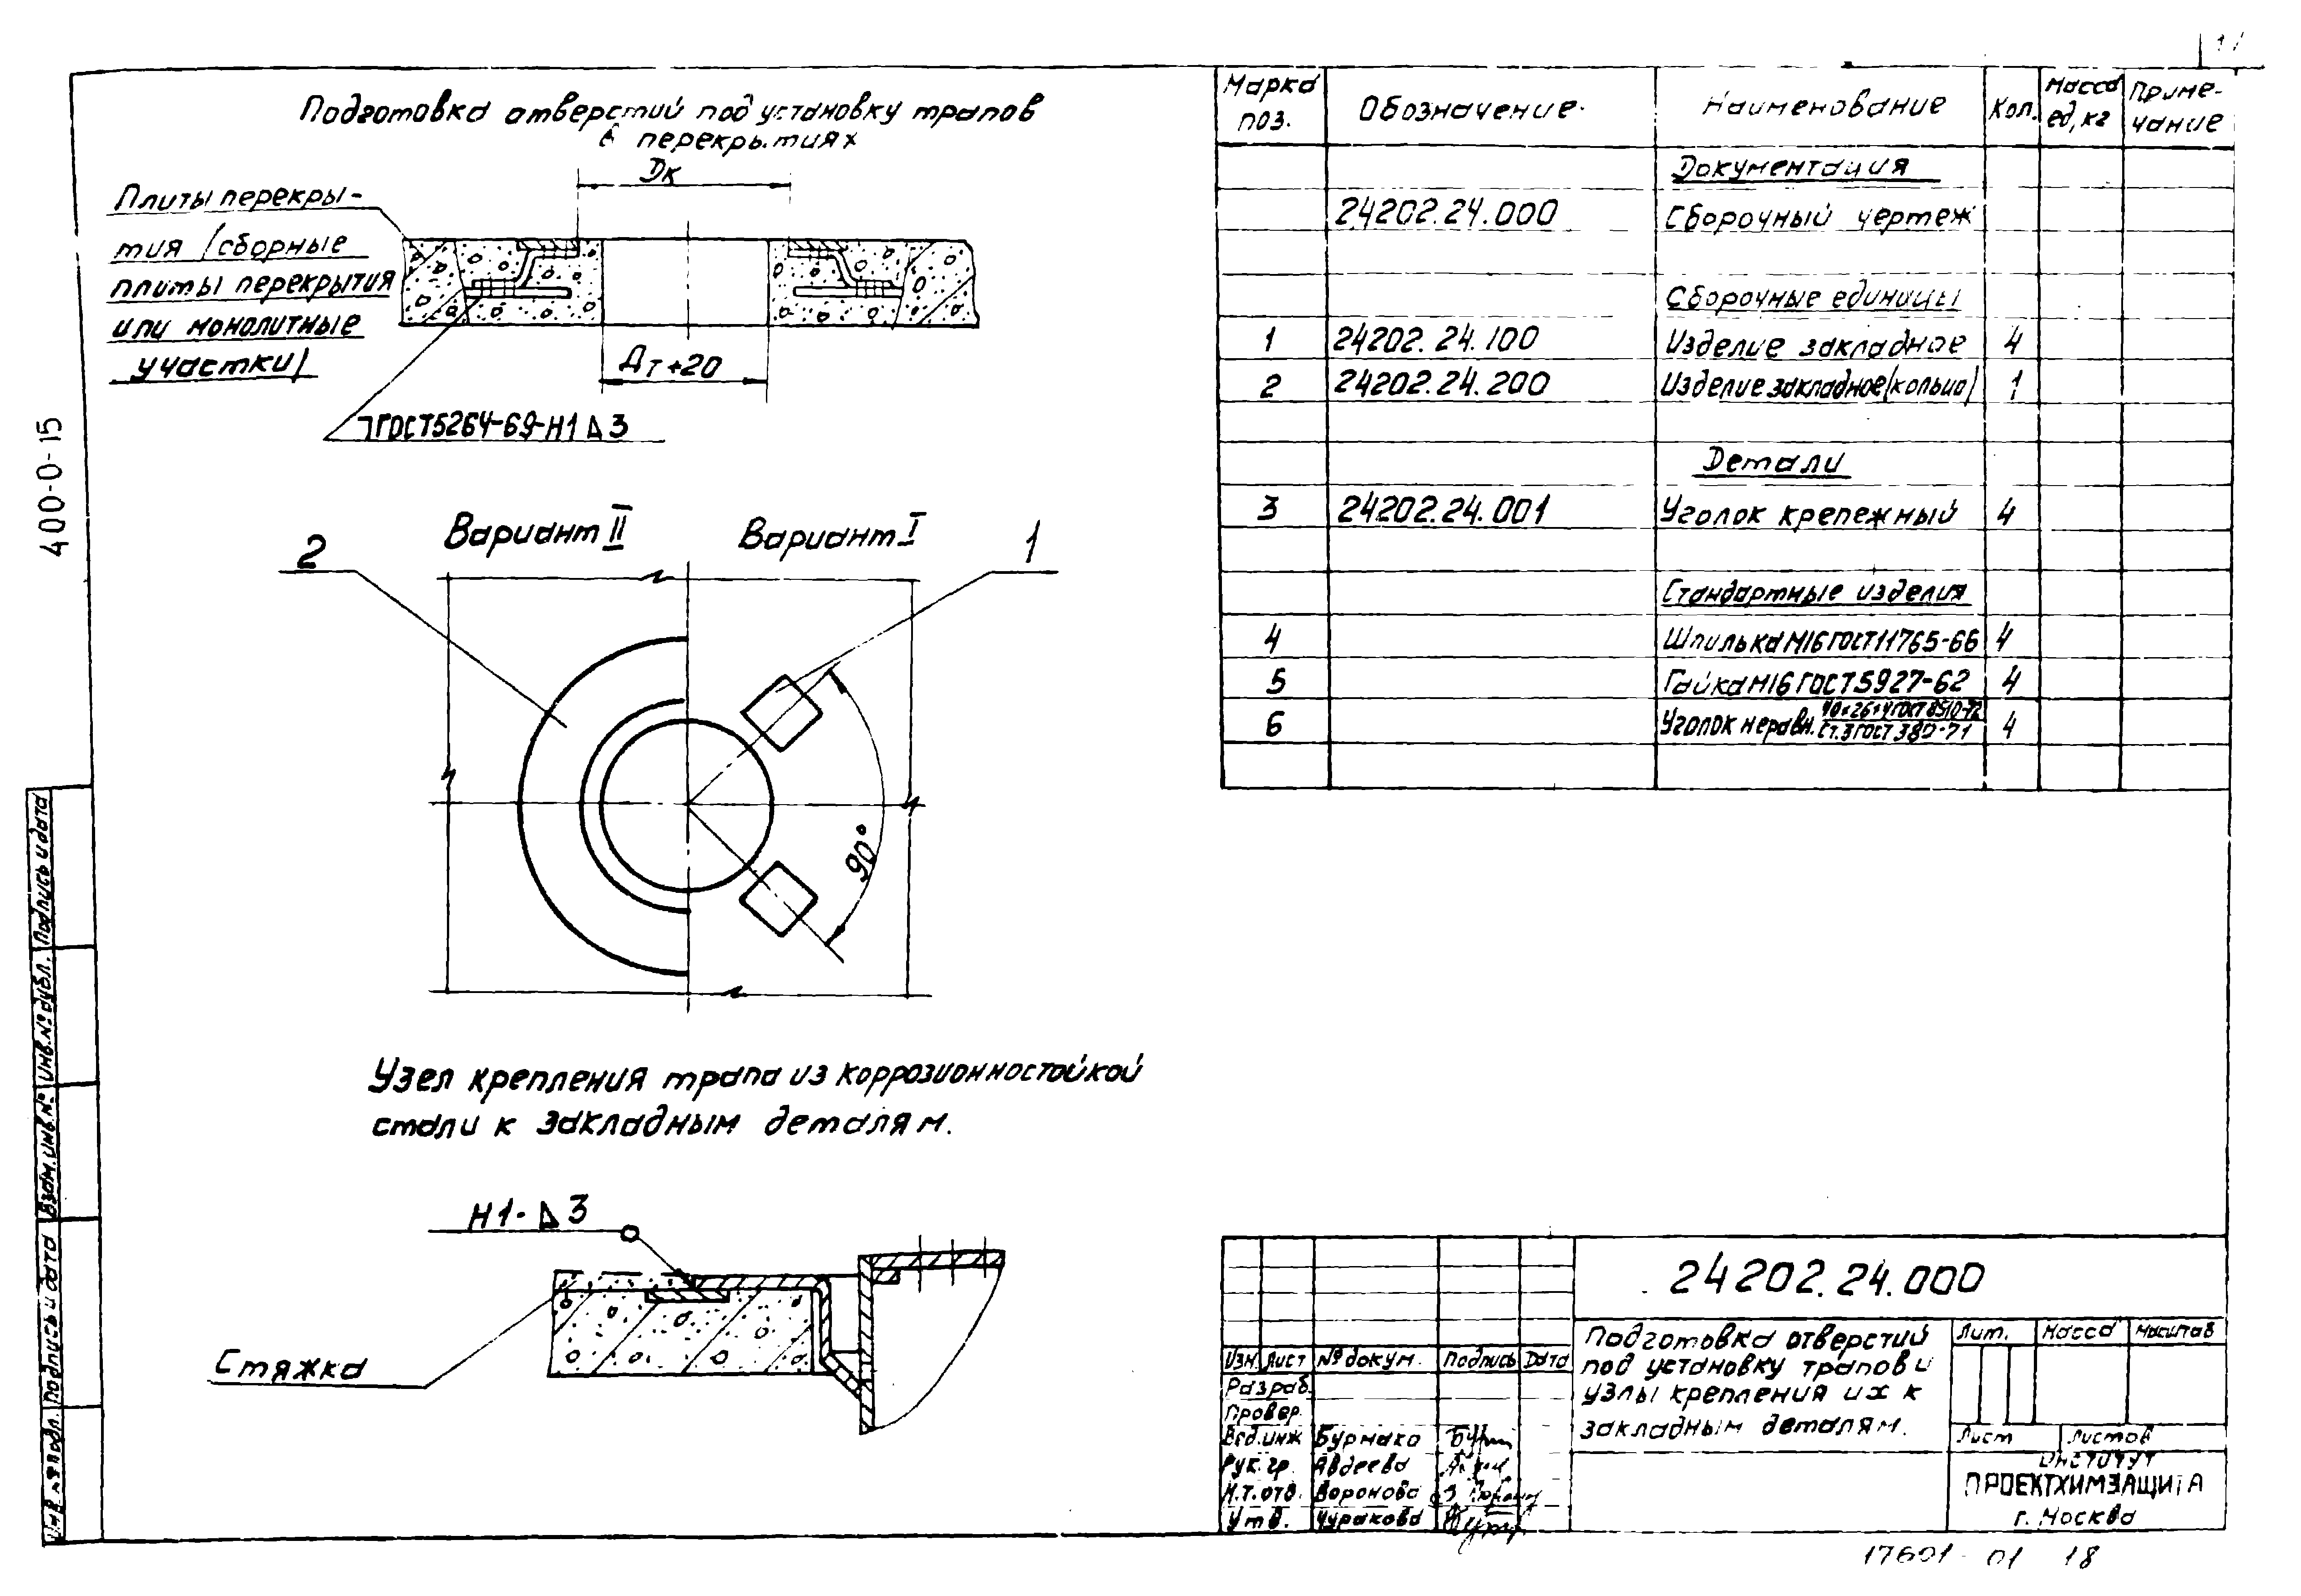 Подготовка отверстий под установку трапов
в перекрытиях
Dк
Плиты перекры-
тия /сборные
плиты перекрытия
или монолитные
участки/
Dт+20
ГОСТ5264-69-Н1 ⊿ 3
400-0-15
Вариант II
Вариант I
2
1
90°
Узел крепления трапа из коррозионностойкой
стали к закладным деталям.
Н1-⊿3
Стяжка
Марка поз. Обозначение Наименование Кол. Масса ед,кг Приме-чание
Документация
24202.24.000 Сборочный чертеж
Сборочные единицы
1 24202.24.100 Изделие закладное 4
2 24202.24.200 Изделие закладное/кольцо/ 1
Детали
3 24202.24.001 Уголок крепежный 4
Стандартные изделия
4 Шпилька М16 ГОСТ11765-66 4
5 Гайка М16 ГОСТ5927-62 4
6 Уголок неравн. 40×26×4 ГОСТ 8510-72 Ст.3 ГОСТ 380-71 4
24202.24.000
Подготовка отверстий
под установку трапов и
узлы крепления их к
закладным деталям.
Лит. Масса Масштаб
Лист Листов
институт
ПРОЕКТХИМЗАЩИТА
г. Москва
Изм. Лист № докум. Подпись Дата
Разраб.
Провер.
Вед.инж Бурмако
Рук.гр. Авдеева
Н.т.отд. Воронова
Утв. Чуракова
Инв. № подл. Подпись и дата Взам.инв.№ Инв.№ дубл. Подпись и дата
17601-01 18